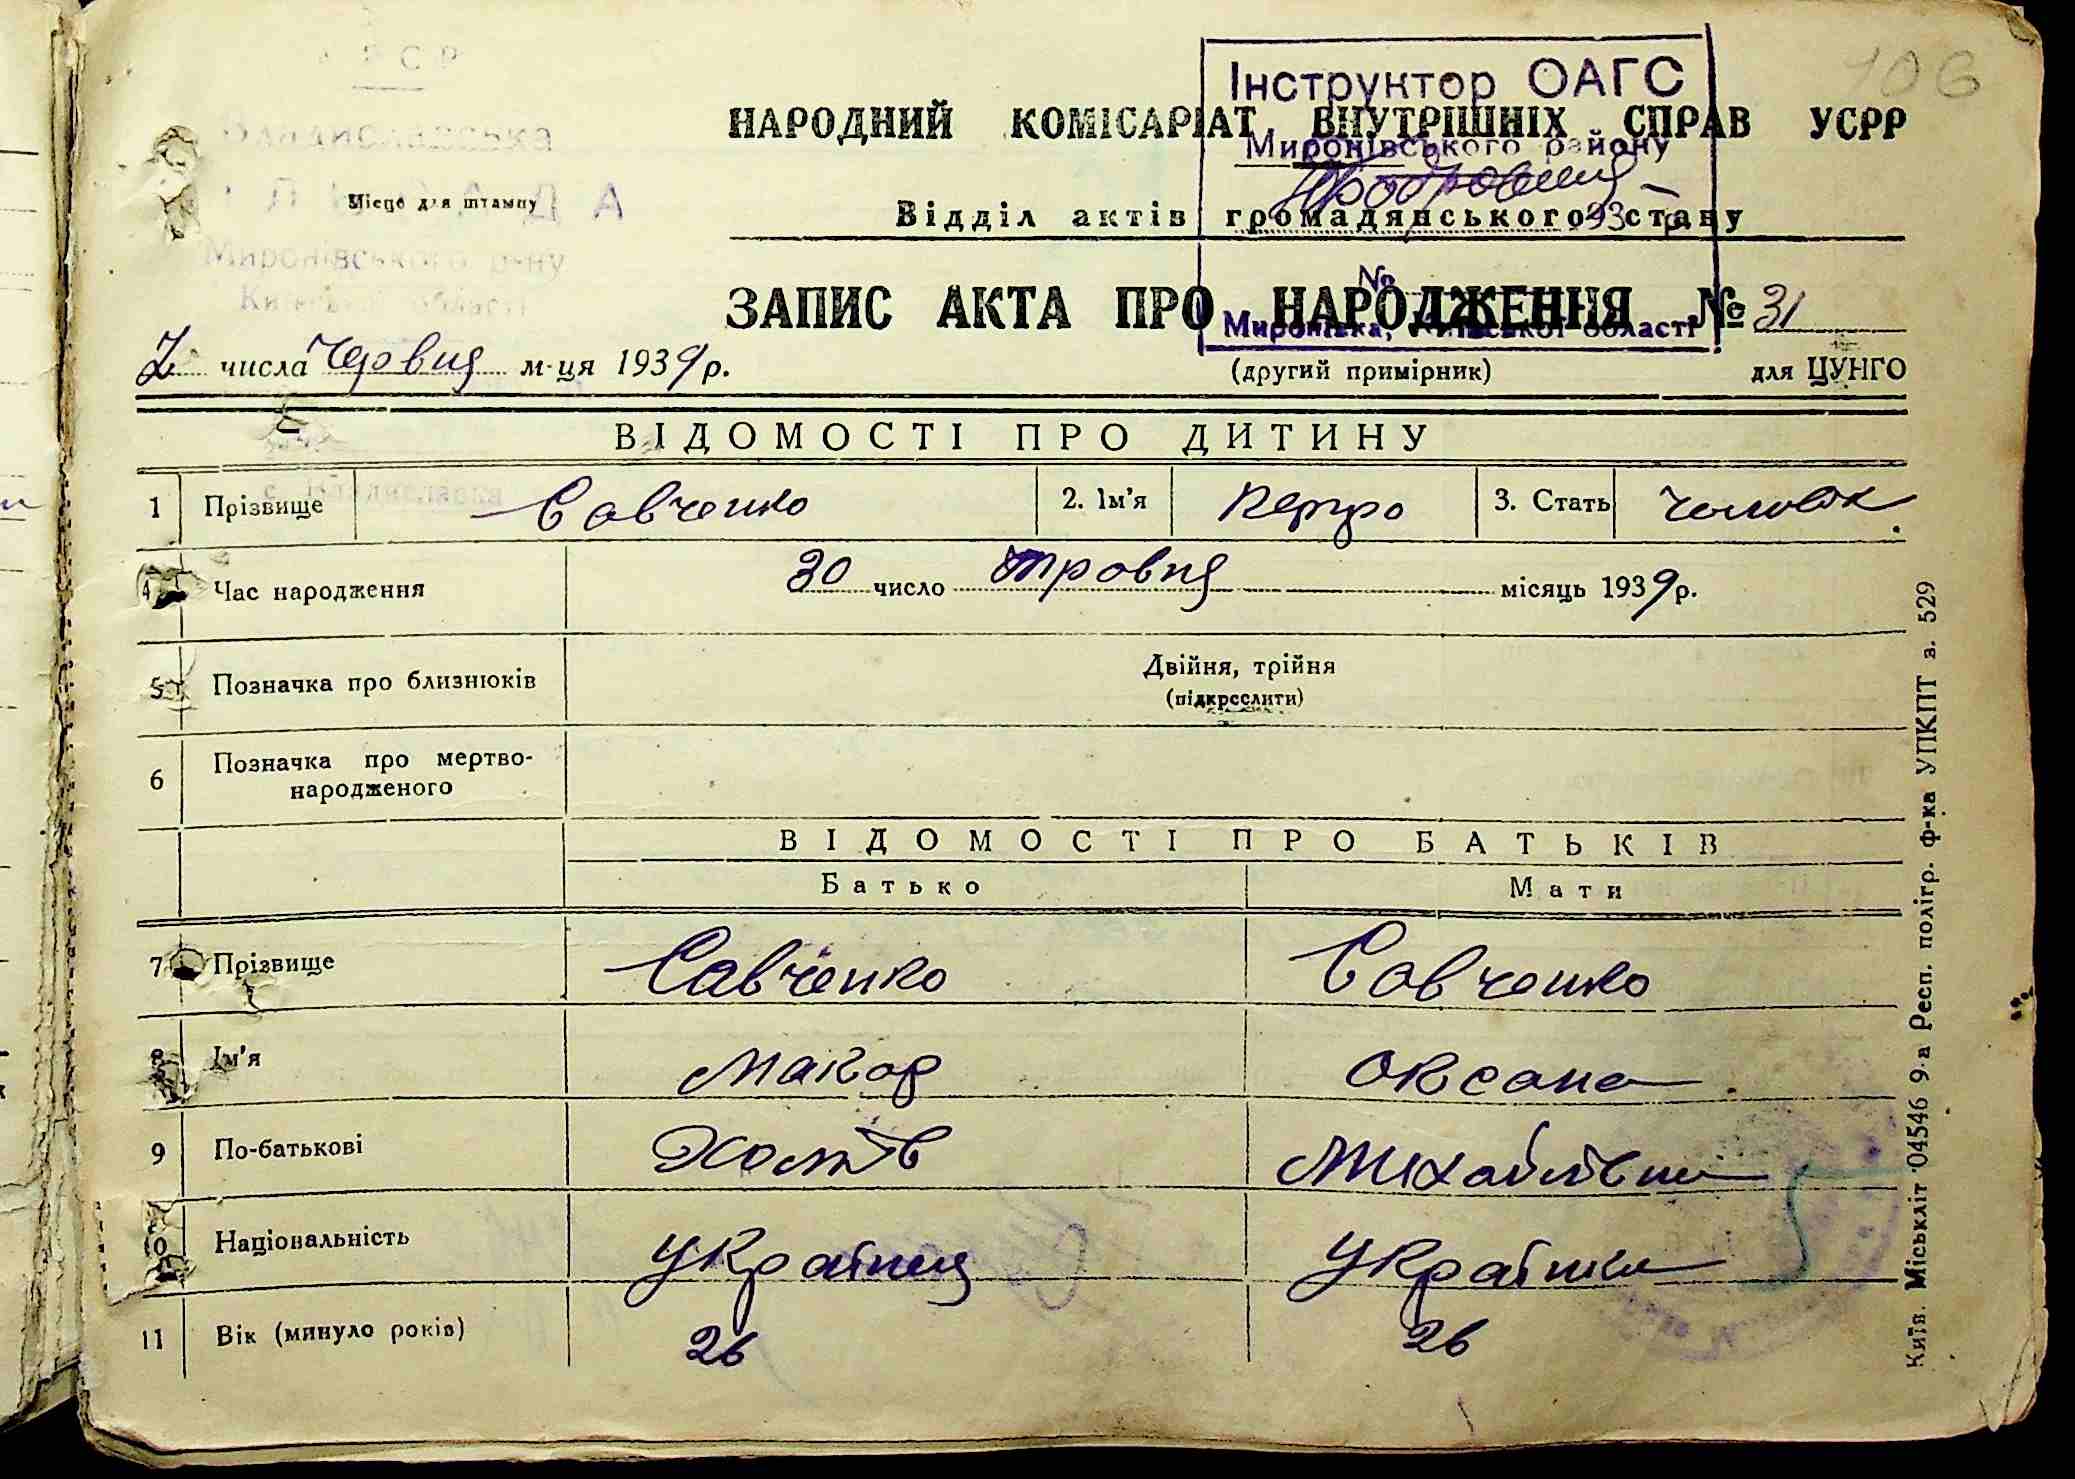 106
Інструктор ОАГС
НАРОДНИЙ КОМІСАРІАТ ВНУТРІШНІХ СПРАВ УСРР
Миронівського району
Місце для штампу
Відділ актів громадянського стану
193
№
ЗАПИС АКТА ПРО НАРОДЖЕННЯ № 31
Миронівка, Київської області
2 числа Червня м-ця 1939 р.
(другий примірник)
для ЦУНГО
ВІДОМОСТІ ПРО ДИТИНУ
1 Прізвище Савченко 2. Ім'я Петро 3. Стать Чоловік
4 Час народження 30 число травня місяць 1939 р.
5 Позначка про близнюків Двійня, трійня
(підкреслити)
6 Позначка про мертво-
народженого
ВІДОМОСТІ ПРО БАТЬКІВ
Батько Мати
7 Прізвище Савченко Савченко
8 Ім'я Макар Оксана
9 По-батькові Михайлівна
10 Національність Українец Українка
11 Вік (минуло років) 26 26
Київ. Міськліт 04546 9-а Респ. полігр. ф-ка УПКПТ з. 529